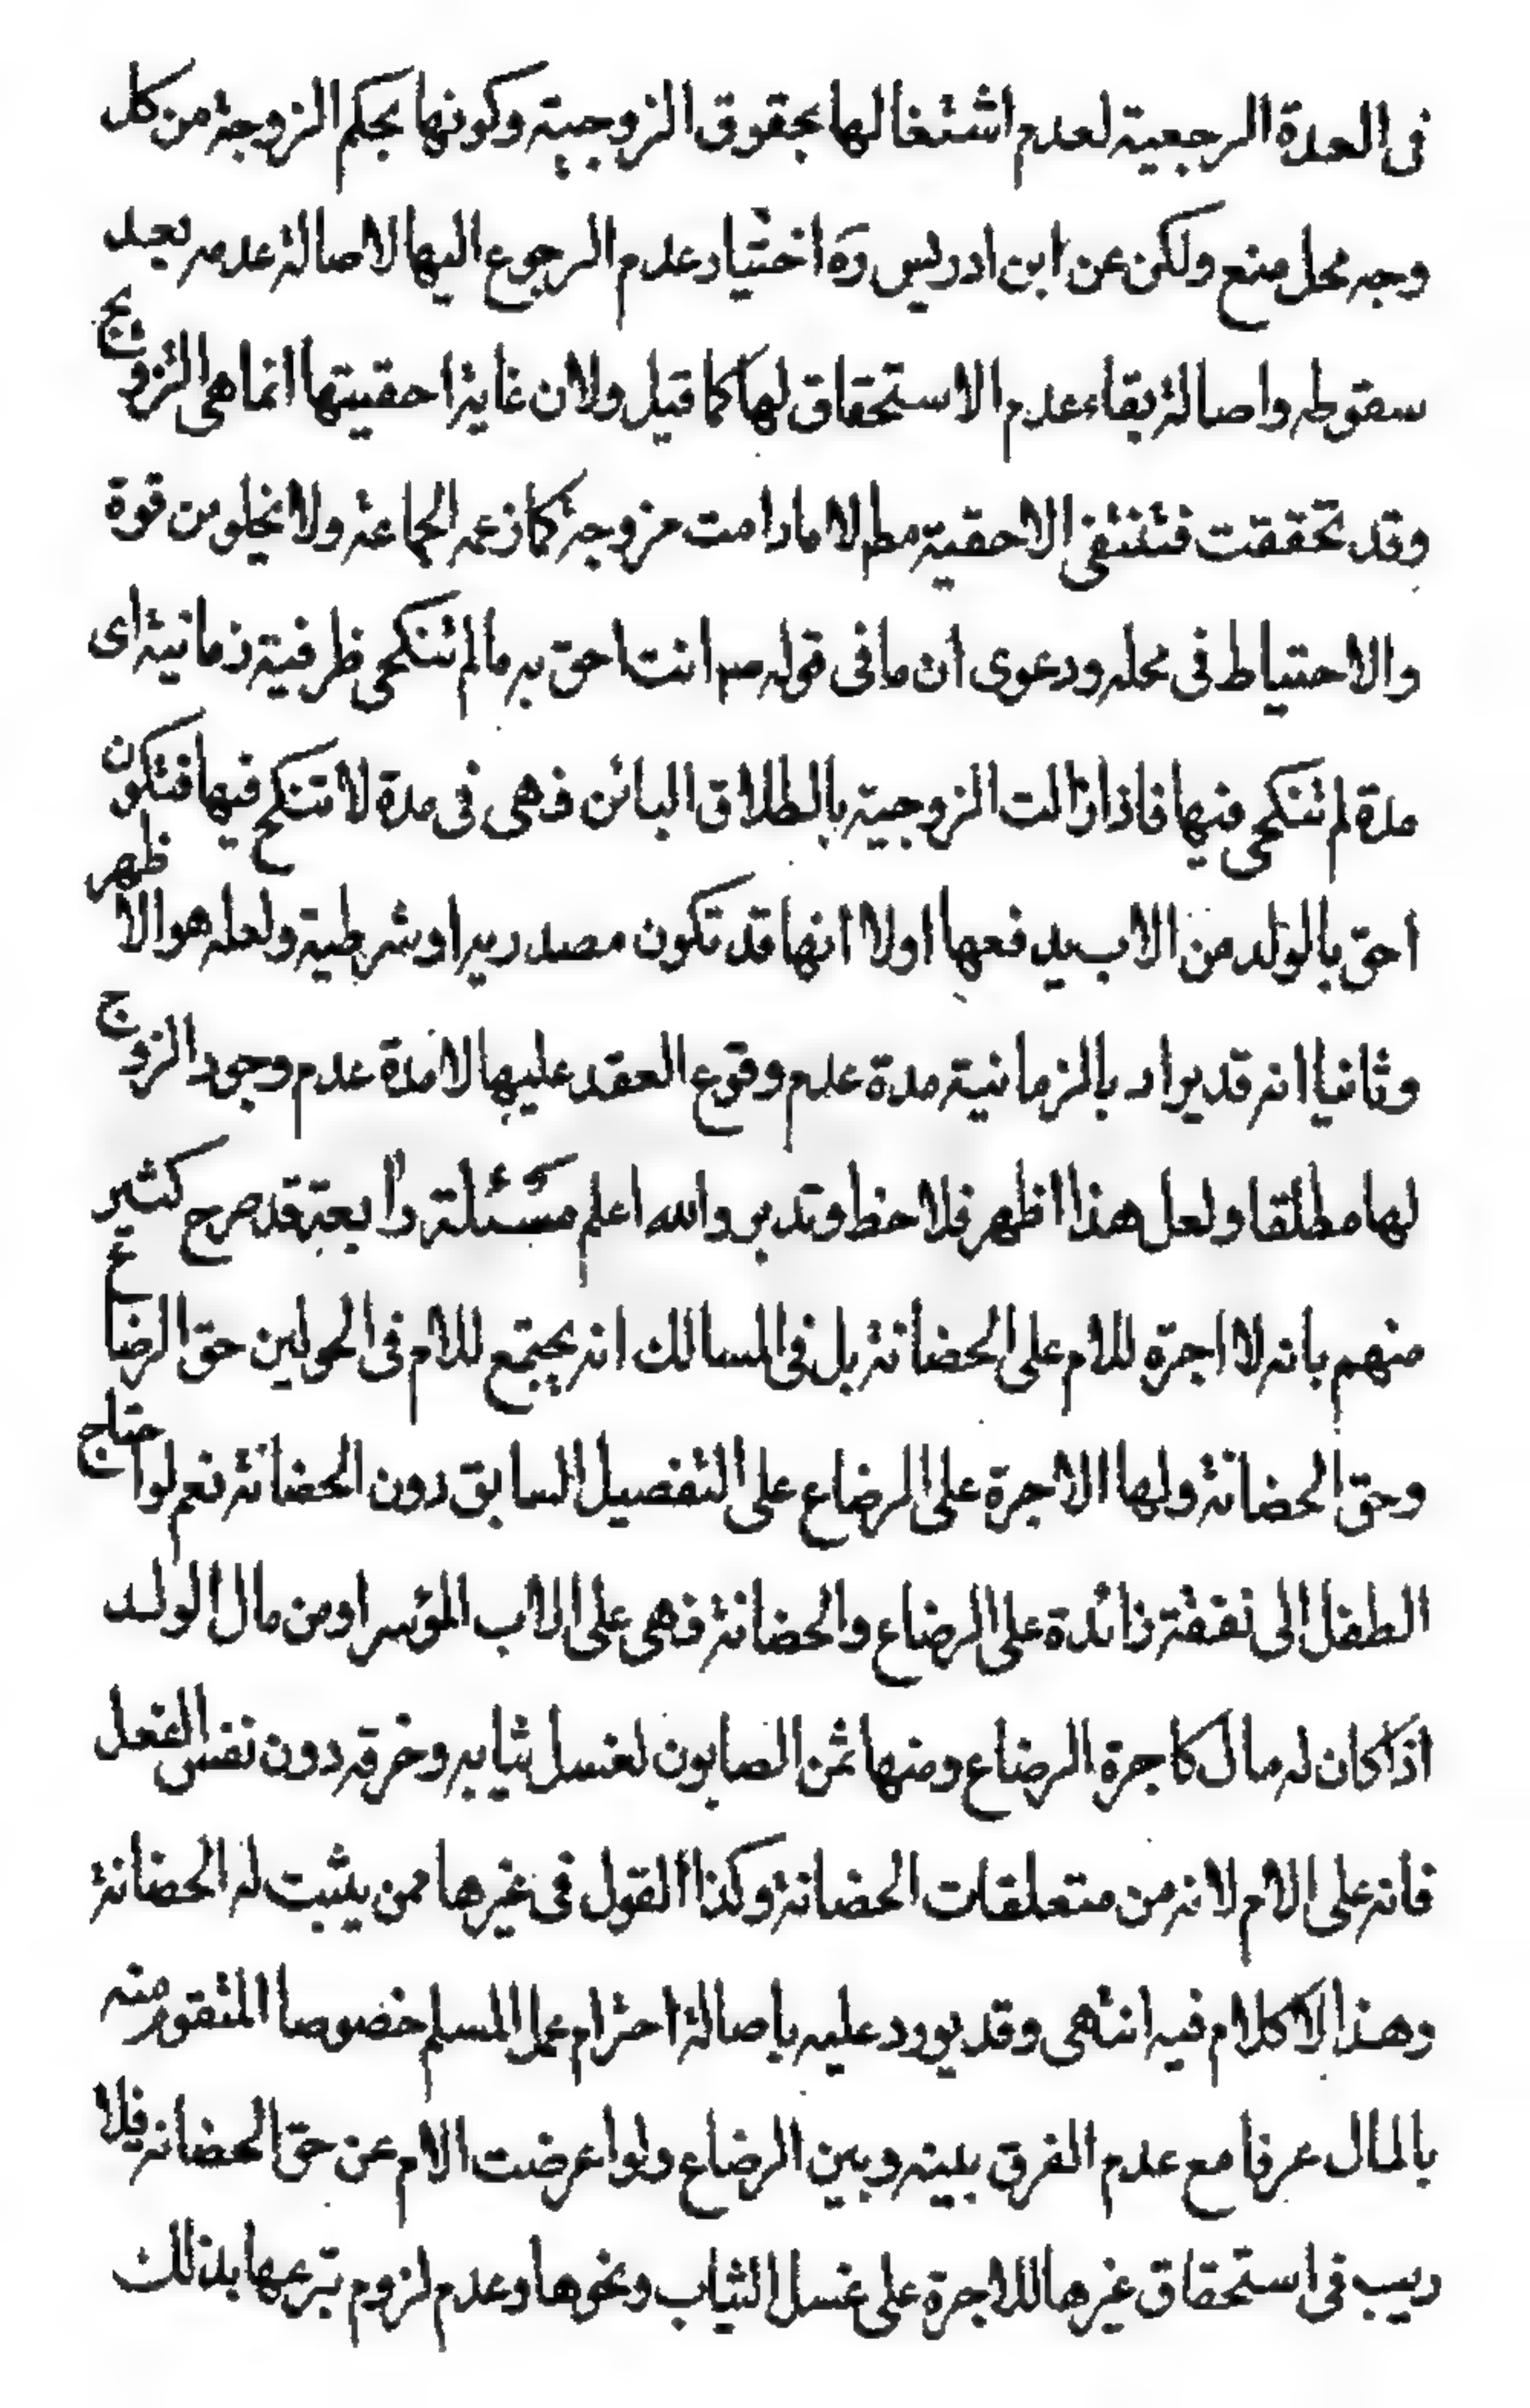 فى العدة الرجعية لعدم اشتغالها بحقوق الزوجية وكونها بحكم الزوجة من كل
وجه محل منع ولكن عن ابن ادريس ره اختيار عدم الرجوع اليها لاصالة عدمه بعد
سقوطه واصالة بقاء عدم الاستحقاق لها كما قيل ولان غاية احقيتها انما هى التزويج
وقد تحققت فتنتفى الاحقية مط لا مادامت مزوجة كما زعمه الجماعة ولا يخلو من قوة
والاحتياط فى محله ودعوى ان ما فى قوله ص انت احق به ما لم تنكحى ظرفية زمانية اى
مدة لم تنكحى فيها فاذا زالت الزوجية بالطلاق البائن فهى فى مدة لا تنكح فيها فتكون
احق بالولد من الاب يدفعها اولا انها قد تكون مصدرية او شرطية ولعله هو الاظهر
وثانيا انه قد يراد بالزمانية مدة عدم وقوع العقد عليها لا مدة عدم وجود الزوج
لها مطلقا ولعل هذا اظهر فلاحظ وتدبر والله اعلم مسئلة رابعة قد صرح كثير
منهم بانه لا اجرة للام على الحضانة بل فى المسالك انه يجتمع للام فى الحولين حق الرضاع
وحق الحضانة ولها الاجرة على الرضاع على التفصيل السابق دون الحضانة نعم لو احتاج
الطفل الى نفقة زائدة على الرضاع والحضانة فهى على الاب المؤسر او من مال الولد
اذا كان له مال كاجرة الرضاع ومنها ثمن الصابون لغسل ثيابه وخرقه دون نفس الفعل
فانه على الام لانه من متعلقات الحضانة وكذا القول فى غيرها ممن يثبت له الحضانة
وهذا لا كلام فيه انتهى وقد يورد عليه باصالة احترام عمل المسلم خصوصا المتقوم منه
بالمال عرفا مع عدم الفرق بينه وبين الرضاع ولو اعرضت الام عن حق الحضانة فلا
ريب فى استحقاق غيرها للاجرة على غسل الثياب ونحوها وعدم لزوم تبرعها بذلك